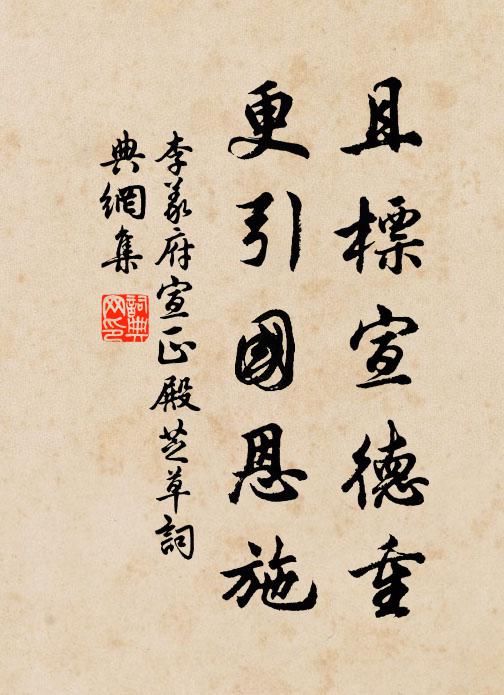 且標宣德重
更引國恩施
李義府宣正殿芝草詞
典網集
詞典網印